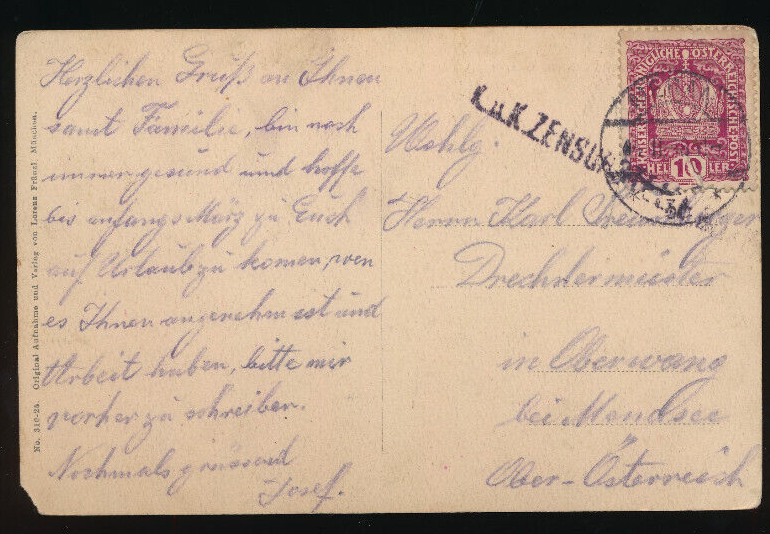 Herzlichen Gruß an Ihnen
samt Familie, bin noch
immer gesund und hoffe
bis anfangs März zu Euch
auf Urlaub zu komen, wen
es Ihnen angenehm ist und
Arbeit haben, bitte mir
vorher zu schreiben.
Nochmals grüssend
Josef.
No. 310-24. Original Aufnahme und Verlag von Lorenz Fränzl, München.
K.u.K. ZENSUR
KAISERKÖNIGLICHE ÖSTERREICHISCHE POST
HELLER
10
Wohlg.
Herrn Karl
Drechslermeister
in Oberwang
bei Mondsee
Ober-Österreich